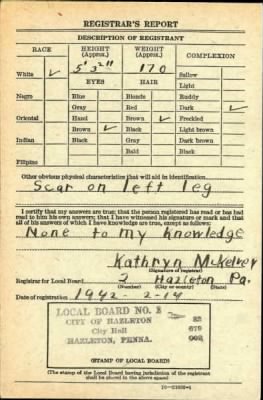 REGISTRAR'S REPORT
DESCRIPTION OF REGISTRANT
RACE HEIGHT (Approx.) WEIGHT (Approx.) COMPLEXION
White ✓ 5' 3½" 170 Sallow
EYES HAIR Light
Negro Blue Blonde Ruddy
Gray Red Dark ✓
Oriental Hazel Brown ✓ Freckled
Brown ✓ Black Light brown
Indian Black Gray Dark brown
Bald Black
Filipino
Other obvious physical characteristics that will aid in identification
Scar on left leg
I certify that my answers are true; that the person registered has read or has had
read to him his own answers; that I have witnessed his signature or mark and that
all of his answers of which I have knowledge are true, except as follows:
None to my knowledge
Kathryn McKelvey
(Signature of registrar)
Registrar for Local Board 2 Hazleton Pa.
(Number) (City or county) (State)
Date of registration 1942-2-14
LOCAL BOARD NO. 2
CITY OF HAZLETON
City Hall
HAZLETON, PENNA.
(STAMP OF LOCAL BOARD)
(The stamp of the Local Board having jurisdiction of the registrant
shall be placed in the above space)